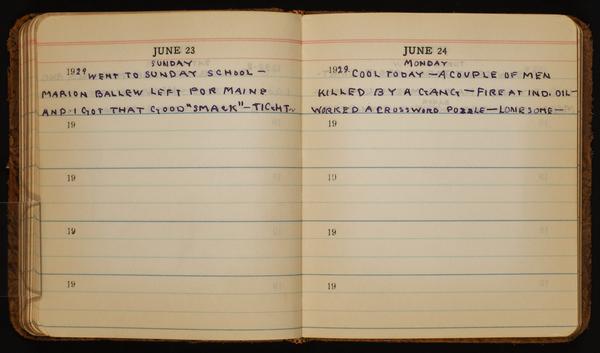 JUNE 23
SUNDAY
1929 WENT TO SUNDAY SCHOOL—
MARION BALLEW LEFT FOR MAINE
AND I GOT THAT GOOD "SMACK"—TIGHT~
19
19
19
19
JUNE 24
MONDAY
1929. COOL TODAY—A COUPLE OF MEN
KILLED BY A GANG—FIRE AT IND. OIL—
WORKED A CROSSWORD POZZLE—LONESOME—
19
19
19
19